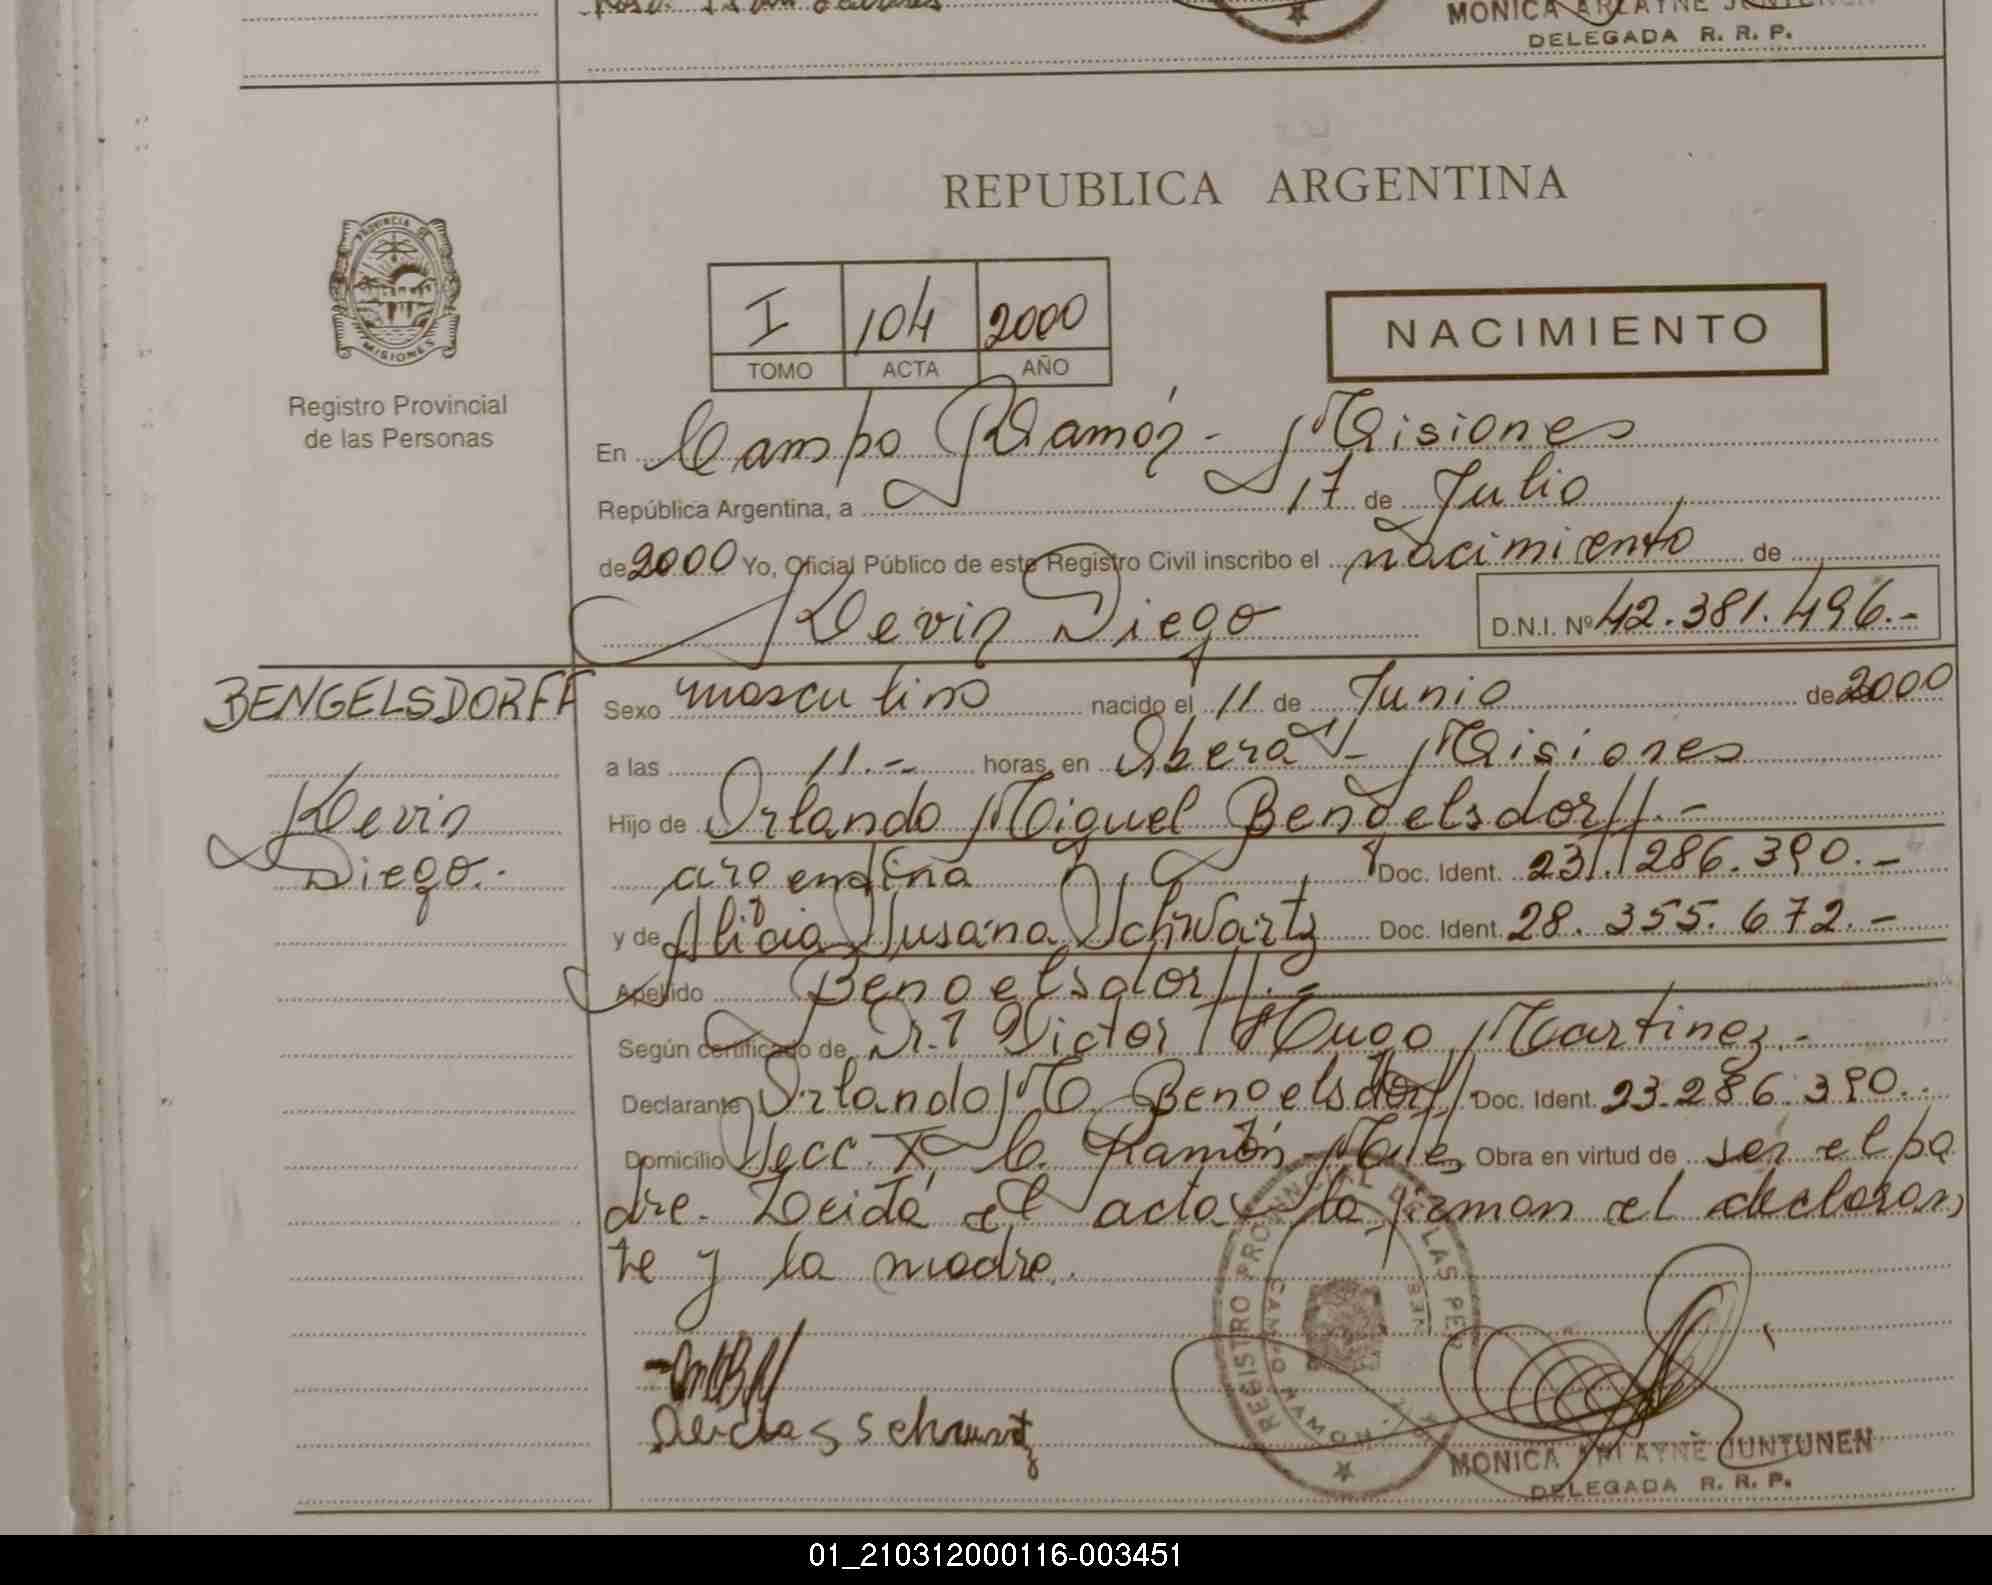 MONICA ARLAYNE JUNTUNEN
DELEGADA R. R. P.
REPUBLICA ARGENTINA
PROVINCIA DE
MISIONES
Registro Provincial
de las Personas
I 104 2000
TOMO ACTA AÑO
NACIMIENTO
En Campo Ramón - Misiones
República Argentina, a 17 de Julio
de 2000 Yo, Oficial Público de este Registro Civil inscribo el nacimiento de
Kevin Diego D.N.I. Nº 42.381.496.-
BENGELSDORFF
Kevin
Diego.-
Sexo masculino nacido el 11 de Junio de 2000
a las 11.- horas, en Oberá - Misiones
Hijo de Orlando Miguel Bengelsdorff.-
argentina Doc. Ident. 23.286.390.-
y de Alicia Susana Schwartz Doc. Ident. 28.355.672.-
Apellido Bengelsdorff.-
Según certificado de Dr. Victor Hugo Martinez.-
Declarante Orlando M. Bengelsdorff Doc. Ident. 23.286.390.-
Domicilio Secc. X C. Ramón - Mnes Obra en virtud de ser el pa
dre. Leida el acta la firman el declaran
te y la madre.
REGISTRO PROVINCIAL DE LAS PERSONAS
CAMPO RAMON
MONICA ARLAYNE JUNTUNEN
DELEGADA R. R. P.
01_210312000116-003451